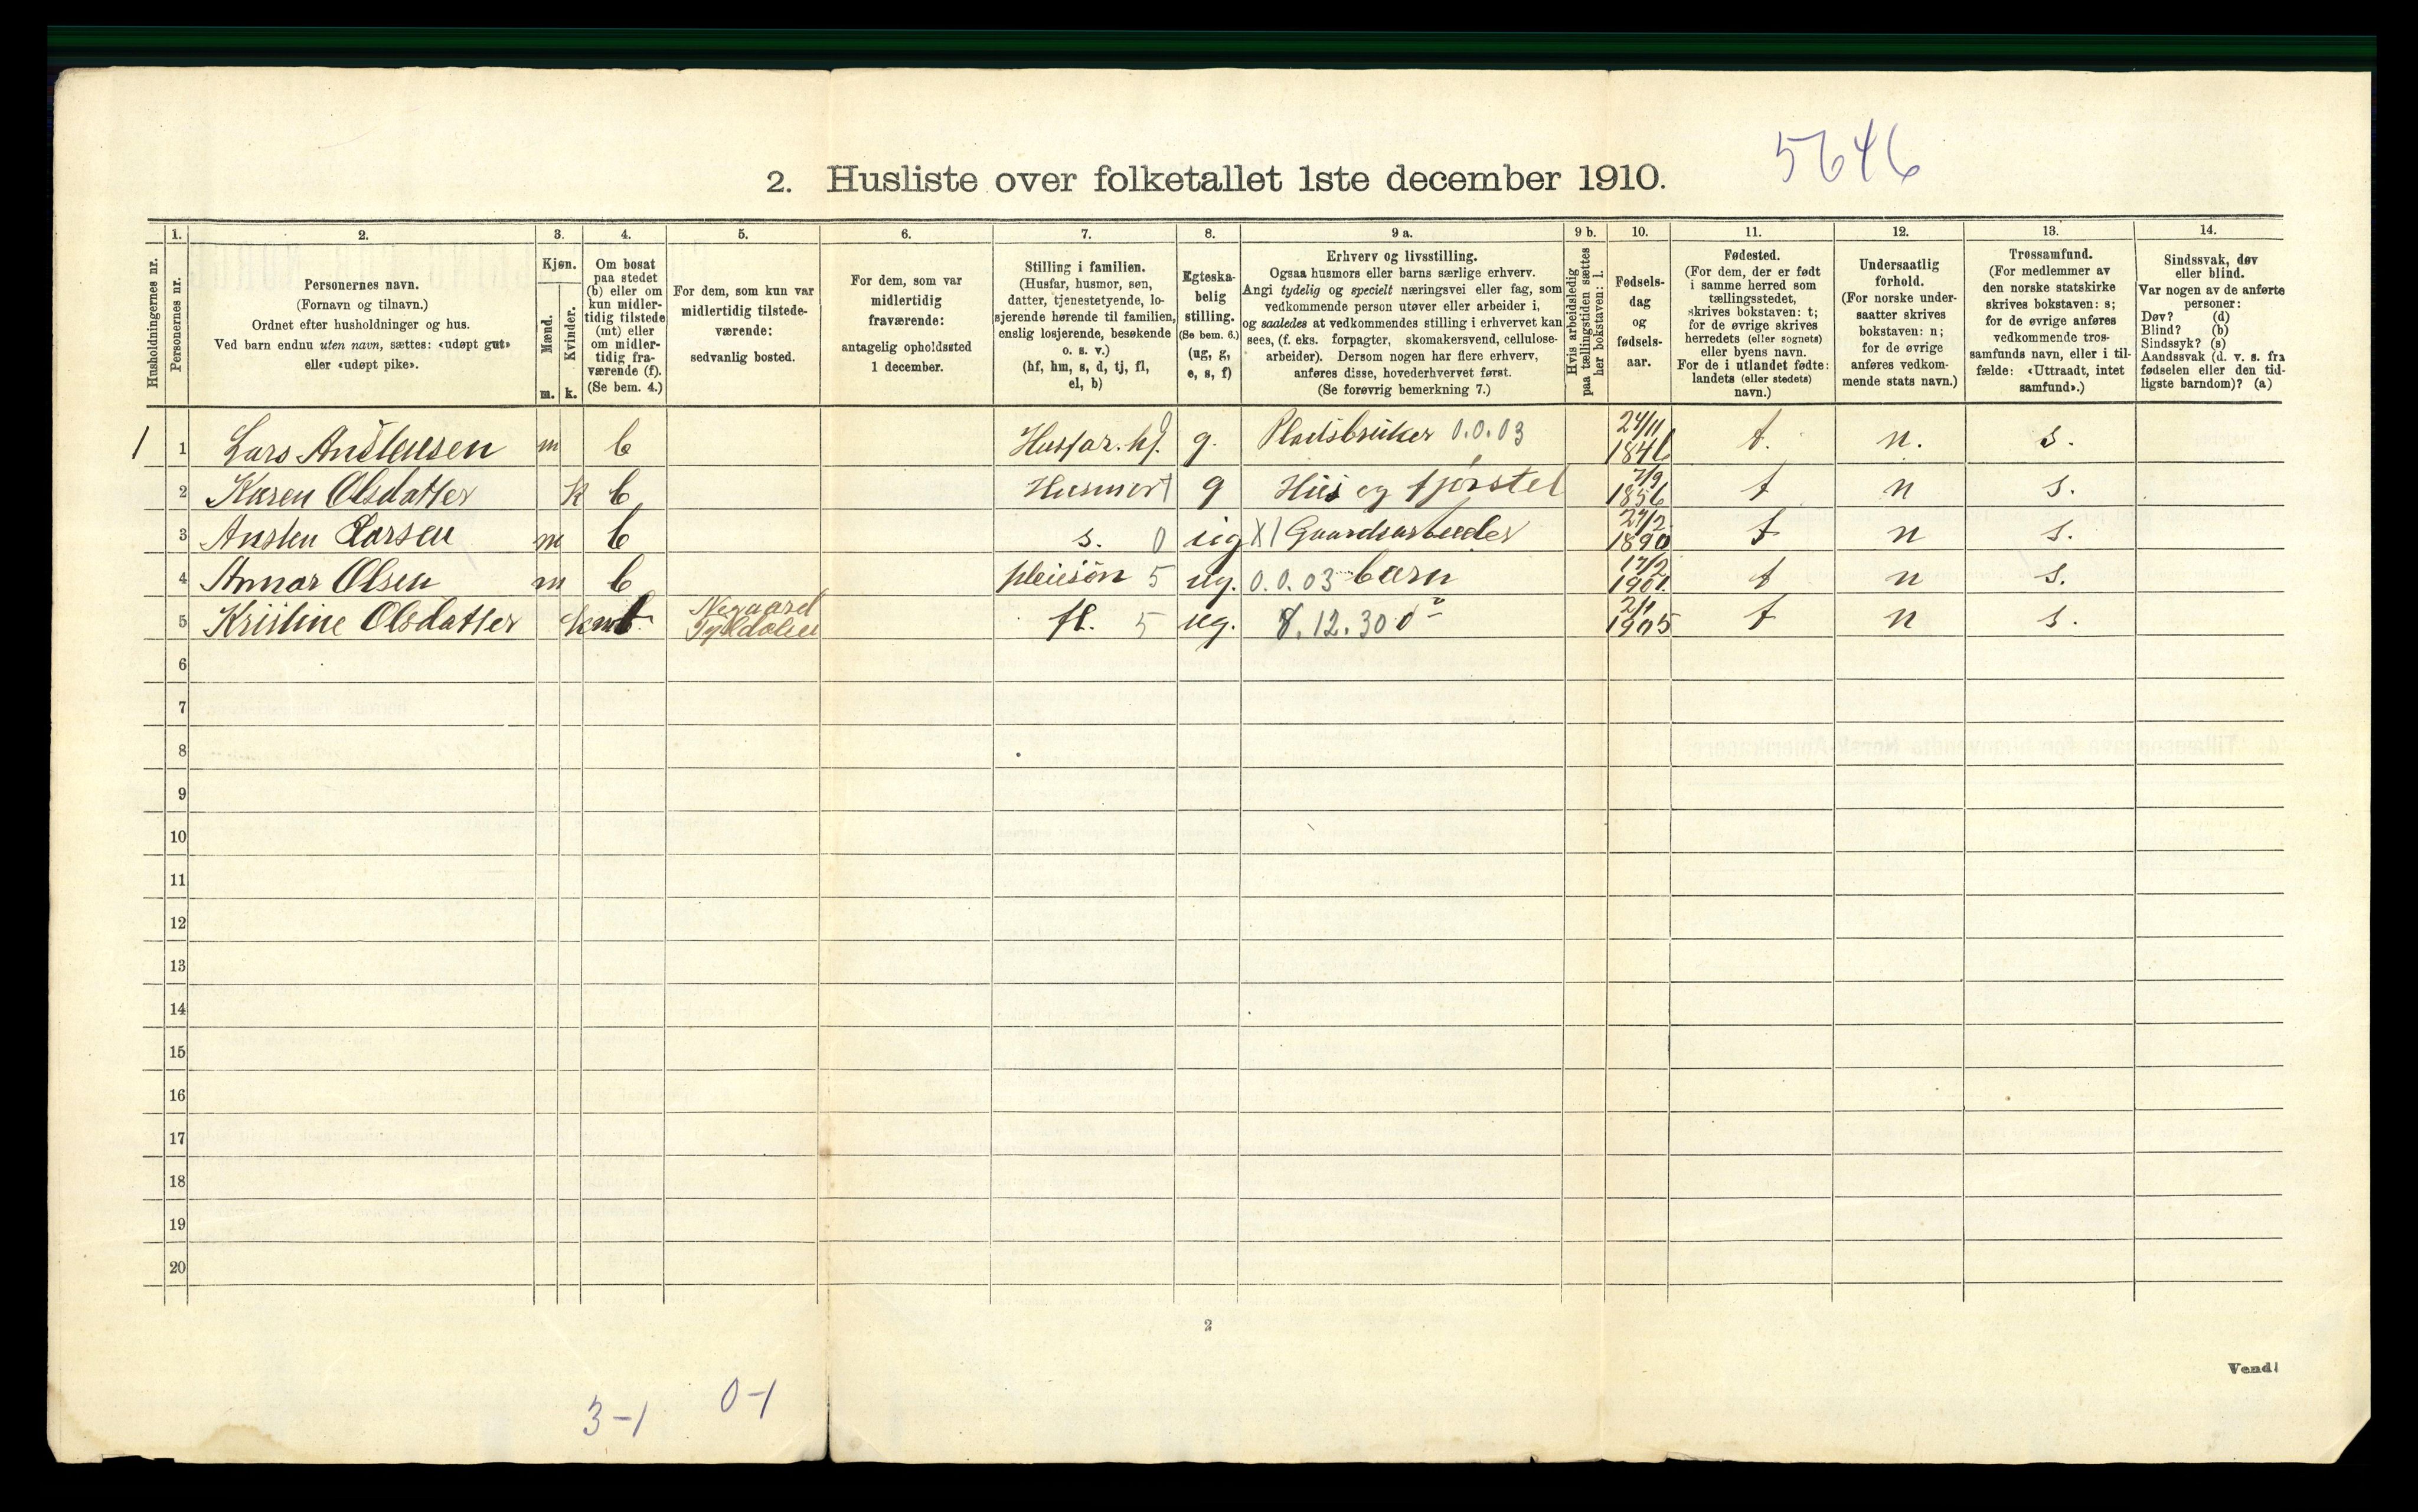 5646
2. Husliste over folketallet 1ste december 1910.
Husholdningernes nr.
1.
Personernes nr.
2.
Personernes navn.
(Fornavn og tilnavn.)
Ordnet efter husholdninger og hus.
Ved barn endnu uten navn, sættes: «udøpt gut»
eller «udøpt pike».
3.
Kjøn.
Mænd.
Kvinder.
m. k.
4.
Om bosat
paa stedet
(b) eller om
kun midler-
tidig tilstede
(mt) eller
om midler-
tidig fra-
værende (f).
(Se bem. 4.)
5.
For dem, som kun var
midlertidig tilstede-
værende:
sedvanlig bosted.
6.
For dem, som var
midlertidig
fraværende:
antagelig opholdssted
1 december.
7.
Stilling i familien.
(Husfar, husmor, søn,
datter, tjenestetyende, lo-
sjerende hørende til familien,
enslig losjerende, besøkende
o. s. v.)
(hf, hm, s, d, tj, fl,
el, b)
8.
Egteska-
belig
stilling.
(Se bem. 6.)
(ug, g,
e, s, f)
9 a.
Erhverv og livsstilling.
Ogsaa husmors eller barns særlige erhverv.
Angi tydelig og specielt næringsvei eller fag, som
vedkommende person utøver eller arbeider i,
og saaledes at vedkommendes stilling i erhvervet kan
sees, (f. eks. forpagter, skomakersvend, cellulose-
arbeider). Dersom nogen har flere erhverv,
anføres disse, hovederhvervet først.
(Se forøvrig bemerkning 7.)
9 b.
Hvis arbeidsledig
paa tællingstiden sættes
her bokstaven: l.
10.
Fødsels-
dag
og
fødsels-
aar.
11.
Fødested.
(For dem, der er født
i samme herred som
tællingsstedet,
skrives bokstaven: t;
for de øvrige skrives
herredets (eller sognets)
eller byens navn.
For de i utlandet fødte:
landets (eller stedets)
navn.)
12.
Undersaatlig
forhold.
(For norske under-
saatter skrives
bokstaven: n;
for de øvrige
anføres vedkom-
mende stats navn.)
13.
Trossamfund.
(For medlemmer av
den norske statskirke
skrives bokstaven: s;
for de øvrige anføres
vedkommende tros-
samfunds navn, eller i til-
fælde: «Uttraadt, intet
samfund».)
14.
Sindssvak, døv
eller blind.
Var nogen av de anførte
personer:
Døv? (d)
Blind? (b)
Sindssyk? (s)
Aandssvak (d. v. s. fra
fødselen eller den tid-
ligste barndom)? (a)
1 1 Lars Anstensen m b Husfar. hf. g. Pladsbruker 0.0.03 24/11 1846 t. n. s.
2 Karen Olsdatter k b Husmor g Hus og fjørstel 7/9 1856 t n s.
3 Ansten Larsen m b s. 0 ug X1 Gaardsarbeider 24/2 1890 t n s.
4 Annar Olsen m b pleiesøn 5 ug. 0.0.03 barn 17/2 1901. t n s.
5 Kristine Olsdatter k mt Negaard Tyldalen fl. 5 ug. 8.12.30 2/1 1905 t n s.
6
7
8
9
10
11
12
13
14
15
16
17
18
19
20
2
Vend!
3-1 0-1